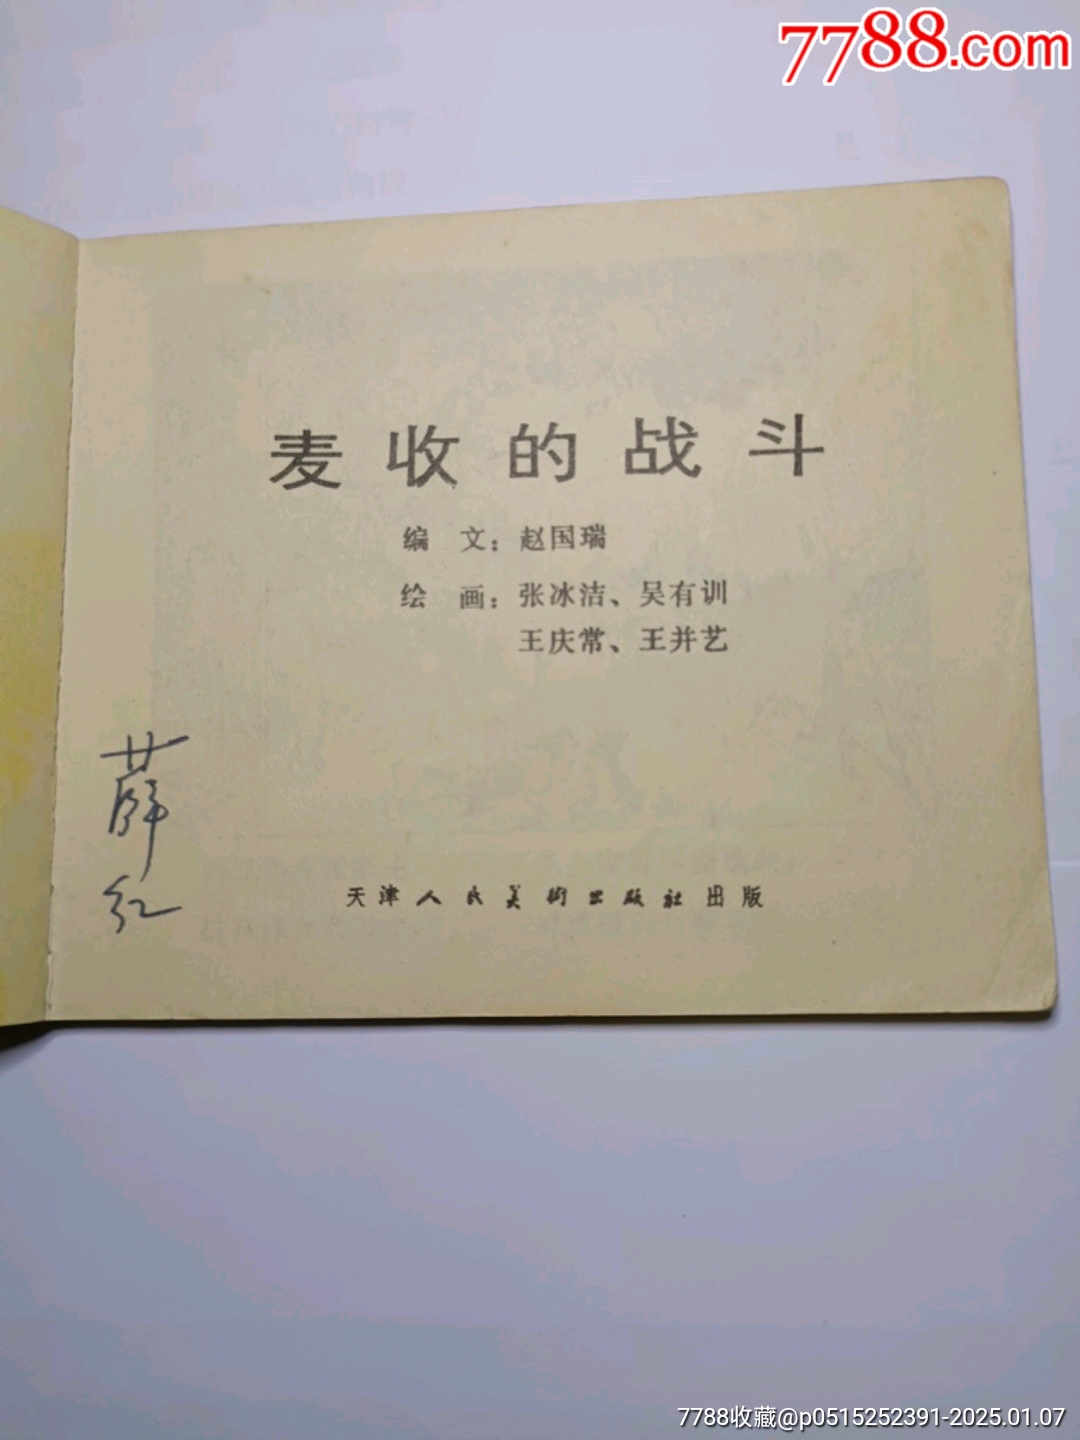 7788.com
麦收的战斗
编 文：赵国瑞
绘 画：张冰洁、吴有训
王庆常、王并艺
薛红
天津人民美術出版社出版
7788收藏@p0515252391-2025.01.07